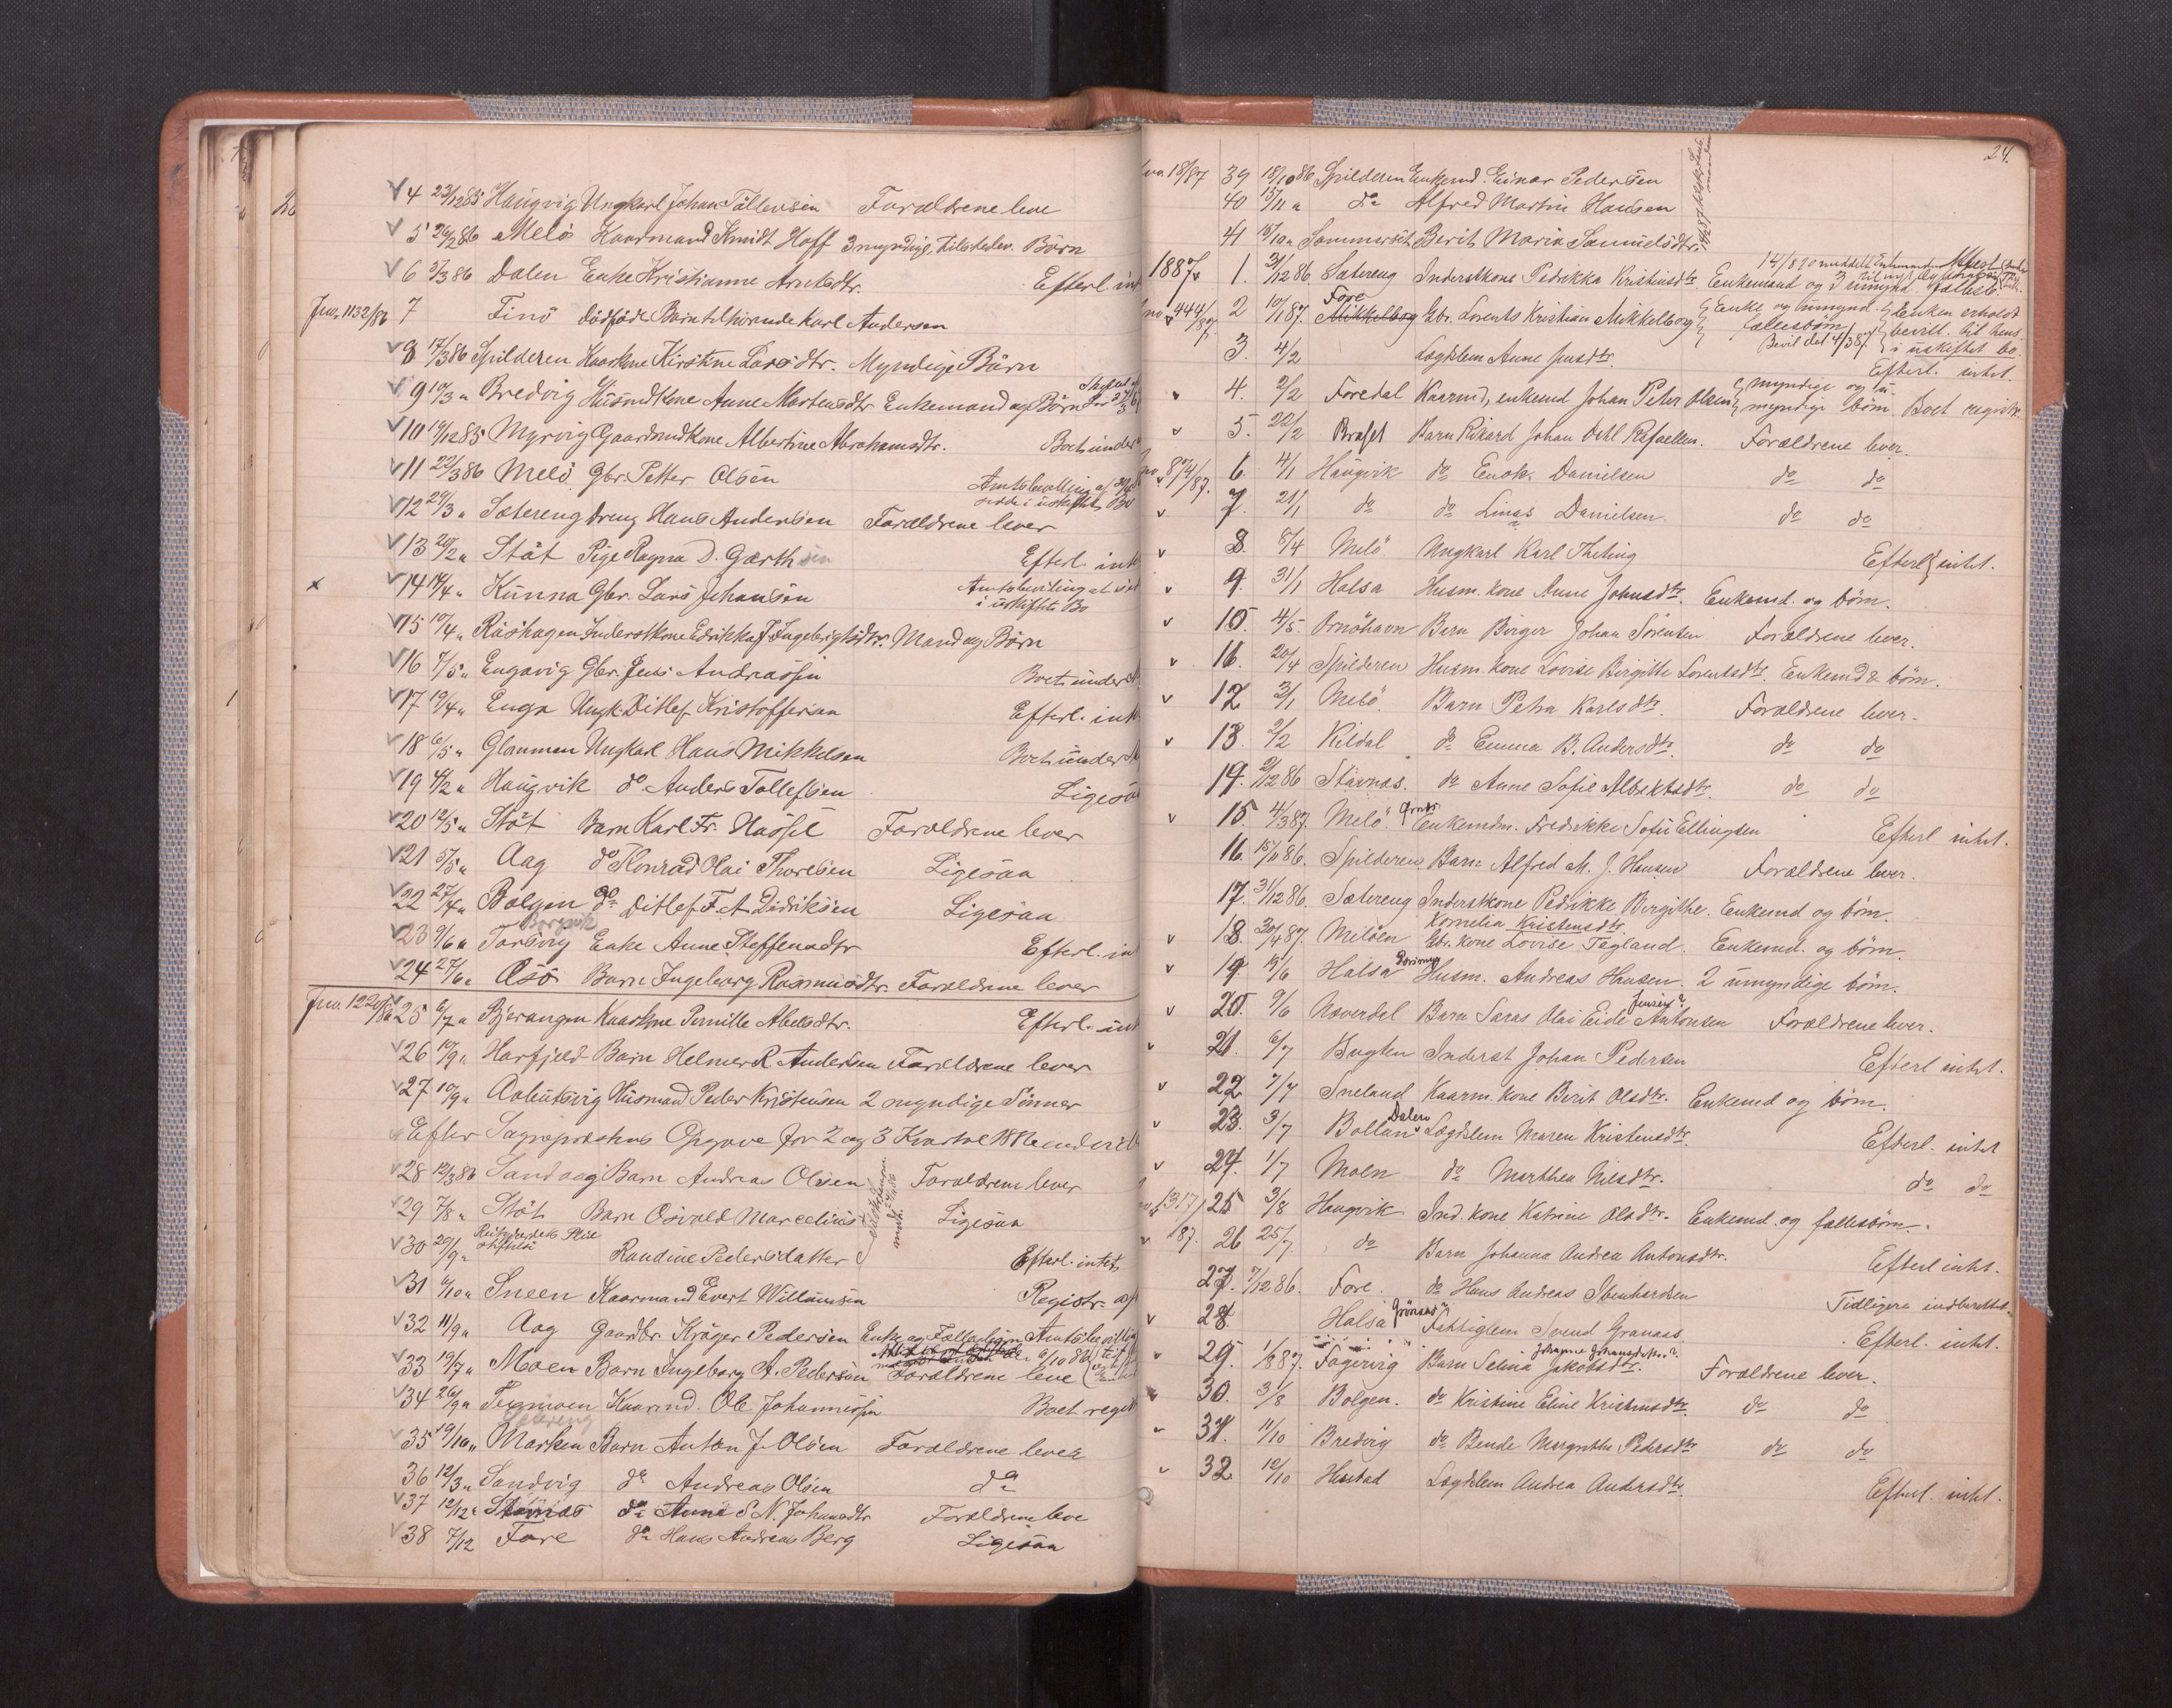 4 23/12 85 Haugvig Ungkarl Johan Tollevsen Forældrene leve
5 26/2 86 Melö Kaarmand Knudt Hoff 3 myndige, tilstedev. Börn
6 3/3 86 Dalen Enke Kristianne Arntsdtr. Efterl. int
Jno. 1132/86 7 Finö dödfödt Barn tilhörende Karl Andersen
8 17/3 86 Spilderen Kaarkone Kirstine Larsdtr. Myndige Börn
9 10/3 " Bredvig Husmdkone Anne Mortensdtr Enkemand og Börn
10 19/12 85 Myrvig Gaardmdkone Albertine Abrahamsdtr. Boet under
11 22/3 86 Melö Gbr. Petter Olsen Amtsbevilling af
sidde i uskiftet Bo
12 29/3 " Sætereng dreng Hans Andersen Forældrene lever
13 20/2 " Stöt Pige Ragna D. Garthsen Efterl. inte
x 14 14/4 " Kunna Gbr. Lars Johansen Amtsbevilling at sid
i uskiftet Bo
15 10/4 " Råshagen Inderstkone Edrikka J. Ingebrigtsdtr. Mand og Börn
16 7/5 " Engavig Gbr. Jens Andreassen Boet under
17 19/4 " Enga Ungk. Ditlef Kristoffersen Efterl. int
18 6/5 " Glommen Ungkarl Hans Mikkelsen Boet under
19 4/2 " Haugvik do Anders Tollefsen Ligesaa
20 12/5 " Stöt Barn Karl Fr. Hassel Forældrene lever
21 5/5 " Aag do Konrad Olai Thoresen Ligesaa
22 27/4 " Bolgen do Ditlef F. A. Didriksen Ligesaa
Borgvik
23 9/6 " Torsvig Enke Anne Steffensdtr Efterl. in
24 27/6 " Esö Barn Ingeborg Rasmusdtr. Forældrene lever
Jno. 1220/86 25 6/7 " Bjerangen Kaarkone Pernille Abelsdtr. Efterl. int
26 10/9 " Harfjeld Barn Helmer R. Andersen Forældrene lever
27 10/9 " Aabutsvig Husmand Peder Kristensen 2 myndige Sönner
Efter Sognepræstens Opgave for 2 og 3 Kvartal
28 12/3 86 Sandvaag Barn Andreas Olsen Forældrene lever
29 7/8 " Stöt Barn Osvald Marcelius Ligesaa
30 20/9 " Randine Pedersdatter Efterl. intet
31 6/10 " Sneen Kaarmand Evert Willumsen Registr. af
32 11/9 " Aag Gaardbr. Kröger Pedersen Enke og Fællesbörn Amtsbevilling
33 19/7 " Moen Barn Ingeborg A. Pedersen Forældrene leve
34 26/9 " Texmoen Kaarmd. Ole Johannessen Boet regist
Sætereng
35 19/10 " Marken Barn Anton J. Olsen Forældrene lever
36 12/3 " Sandvig do Andreas Olsen do
37 12/12 " Stavnes do Anne S. N. Johansdtr Forældrene leve
38 7/12 Fore do Hans Andreas Berg Ligesaa
24.
18/87 39 18/10 86 Spilderen Enkemd. Einar Pedersen
40 15/11 " do Alfred Martin Hansen
41 15/10 " Sommerset Berit Maria Samuelsdtr.
1887 1. 31/12 86 Sætereng Inderstkone Pedrikka Kristensdtr. Enkemand og 3 umynd. fællesb.
Fore
444/87 2 10/1 87. Mikkelborg Gbr. Lorents Kristian Mikkelborg Enke og umynd. fællesbörn Enken erholdt bevill. til hens.
Bevil dat. 4/3 87. i uskiftet bo.
3. 4/2 Lægdslem Anne Jensdtr. Efterl. intet.
4. 2/2 Foredal Kaarmd, enkemd Johan Peter Olsen myndige og u-
myndige börn Boet registr.
5. 22/2 Braset Barn Rikard Johan Dell Rafaelsen. Forældrene lever.
874/87. 6. 4/1 Haugvik do Enok Danielsen do do
7. 21/1 do do Linas Danielsen do do
8. 8/4 Melö Ungkarl Karl Theting Efterl. intet.
9. 31/1 Halsa Husm. kone Anne Johnsdtr. Enkemd. og börn.
10. 4/5 Örnöhavn Barn Birger Johan Sörensen Forældrene lever.
11. 20/4 Spilderen Husm. kone Lovise Birgitte Lorentsdtr. Enkemd & börn.
12 3/1 Melö Barn Petra Karlsdtr. Forældrene lever.
13. 2/2 Kildal do Emma B. Andersdtr. do do
14. 2/12 86 Stavnæs. do Anne Sofie Albrektsdtr. do do
15. 4/3 87. Melö. Enkemdm. Fredrikke Sofie Ellingsen Efterl intet.
16. 15/11 86. Spilderen Barn Alfred M. J. Hansen Forældrene lever.
17. 31/12 86. Sætereng Inderstkone Pedrikke Birgithe. Enkemd og börn.
Kornelia Kristensdtr.
18. 30/4 87. Melöen Gbr. kone Lovise Tegland. Enkemd. og börn.
19. 12/6 Halsa Husm. Andreas Hansen. 2 umyndige börn.
Jensen?
20. 9/6 Næverdal Barn Saras Olai Eide Antonsen Forældrene lever.
21. 6/7 Bugten Inderst Johan Pedersen Efterl intet.
22. 7/7 Sneland Kaarm. kone Berit Olsdtr. Enkemd og börn.
Dalen
23. 3/7 Bollen Lægdslem Maren Kristensdtr. Efterl. intet
24. 1/7 Moen do Marthea Nilsdtr. do do
1317/87. 25 3/8 Haugvik Ind. kone Katrine Olsdtr. Enkemd. og fællesbörn.
26 25/7 do Barn Johanna Andrea Antonsdtr. Efterl intet.
27. 7/12 86. Fore. do Hans Andreas Ibenhardsen Tidligere indberettet.
28. Halsa Grönaas Fattiglem Svend Granaas Efterl. intet.
29. 1/8 87. Fagervig Barn Selina Jakobsdtr. Forældrene lever.
30. 3/8 Bolgen. do Kristine Eline Kristensdtr. do do
31. 11/10 Bredvig do Bende Margrethe Pedersdtr do do
32. 12/10 Hustad Lægdslem Andrea Andersdtr. Efterl. intet.